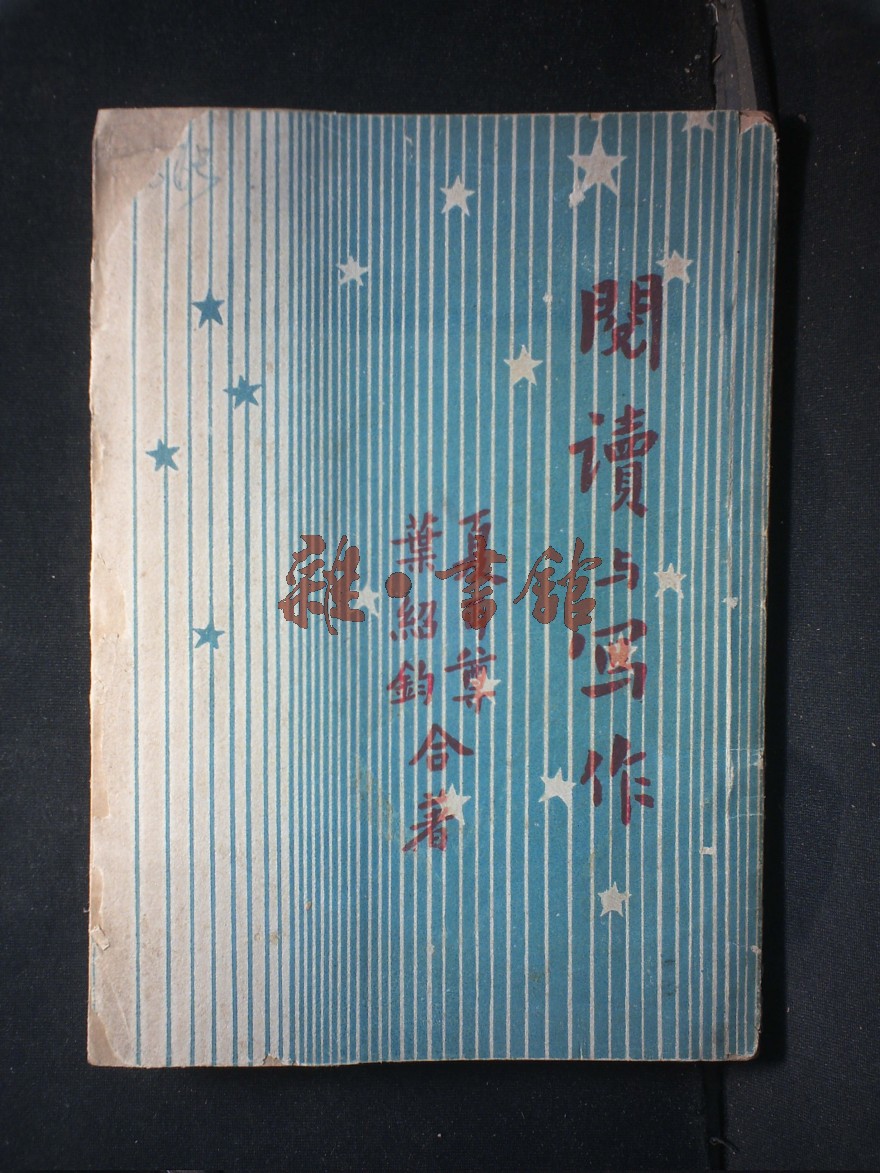 閱讀与写作
夏丏尊
葉紹鈞
合著
雜·書館